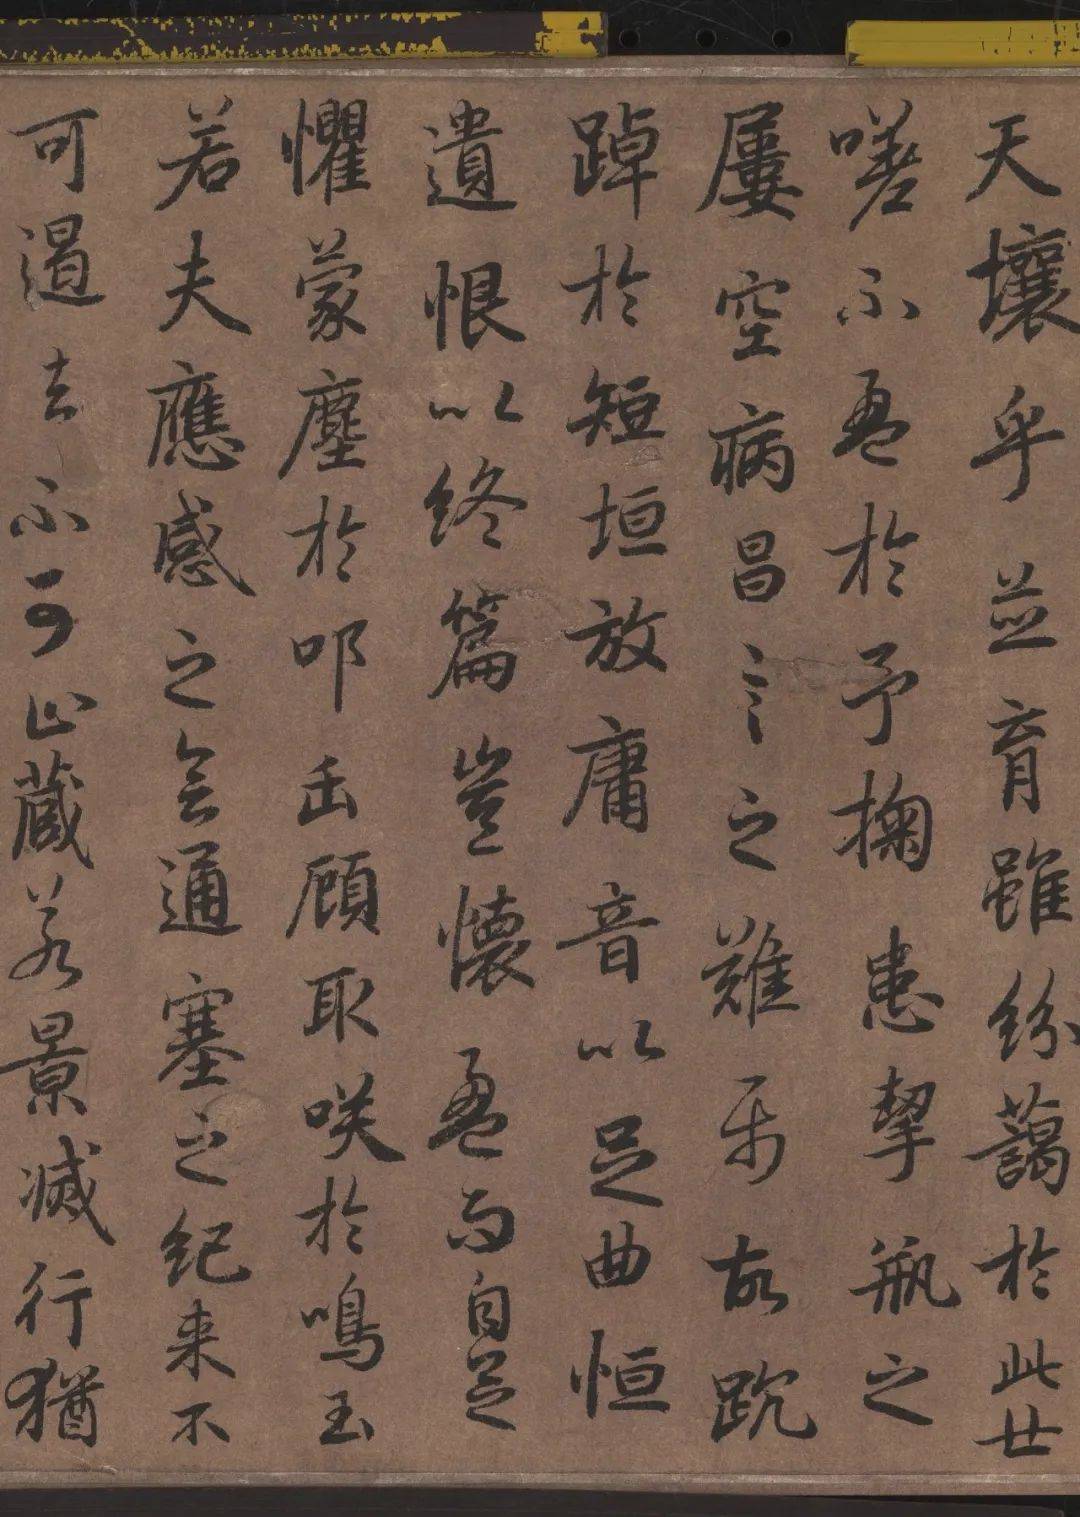 天壤乎並育雖紛藹於此世
嗟不盈於予掬患挈瓶之
屢空病昌言之難属故踸
踔於短垣放庸音以足曲恒
遺恨以終篇豈懷盈而自足
懼蒙塵於叩缶顧取咲於鳴玉
若夫應感之會通塞之紀来不
可遏去不可止蔵若景滅行猶